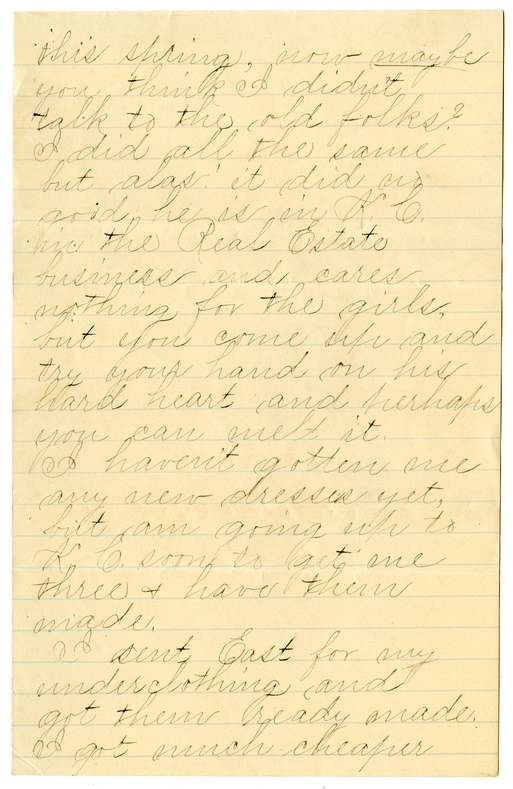 this spring, now maybe
you think I didn't
talk to the old folks?
I did all the same
but alas! it did no
good, he is in K. C.
in the Real Estate
business and cares
nothing for the girls,
but you come up and
try your hand on his
hard heart and perhaps
you can melt it.
I haven't gotten me
any new dresses yet,
but am going up to
K. C. soon to get me
three & have them
made.
I sent East for my
underclothing and
got them ready made.
I got much cheaper